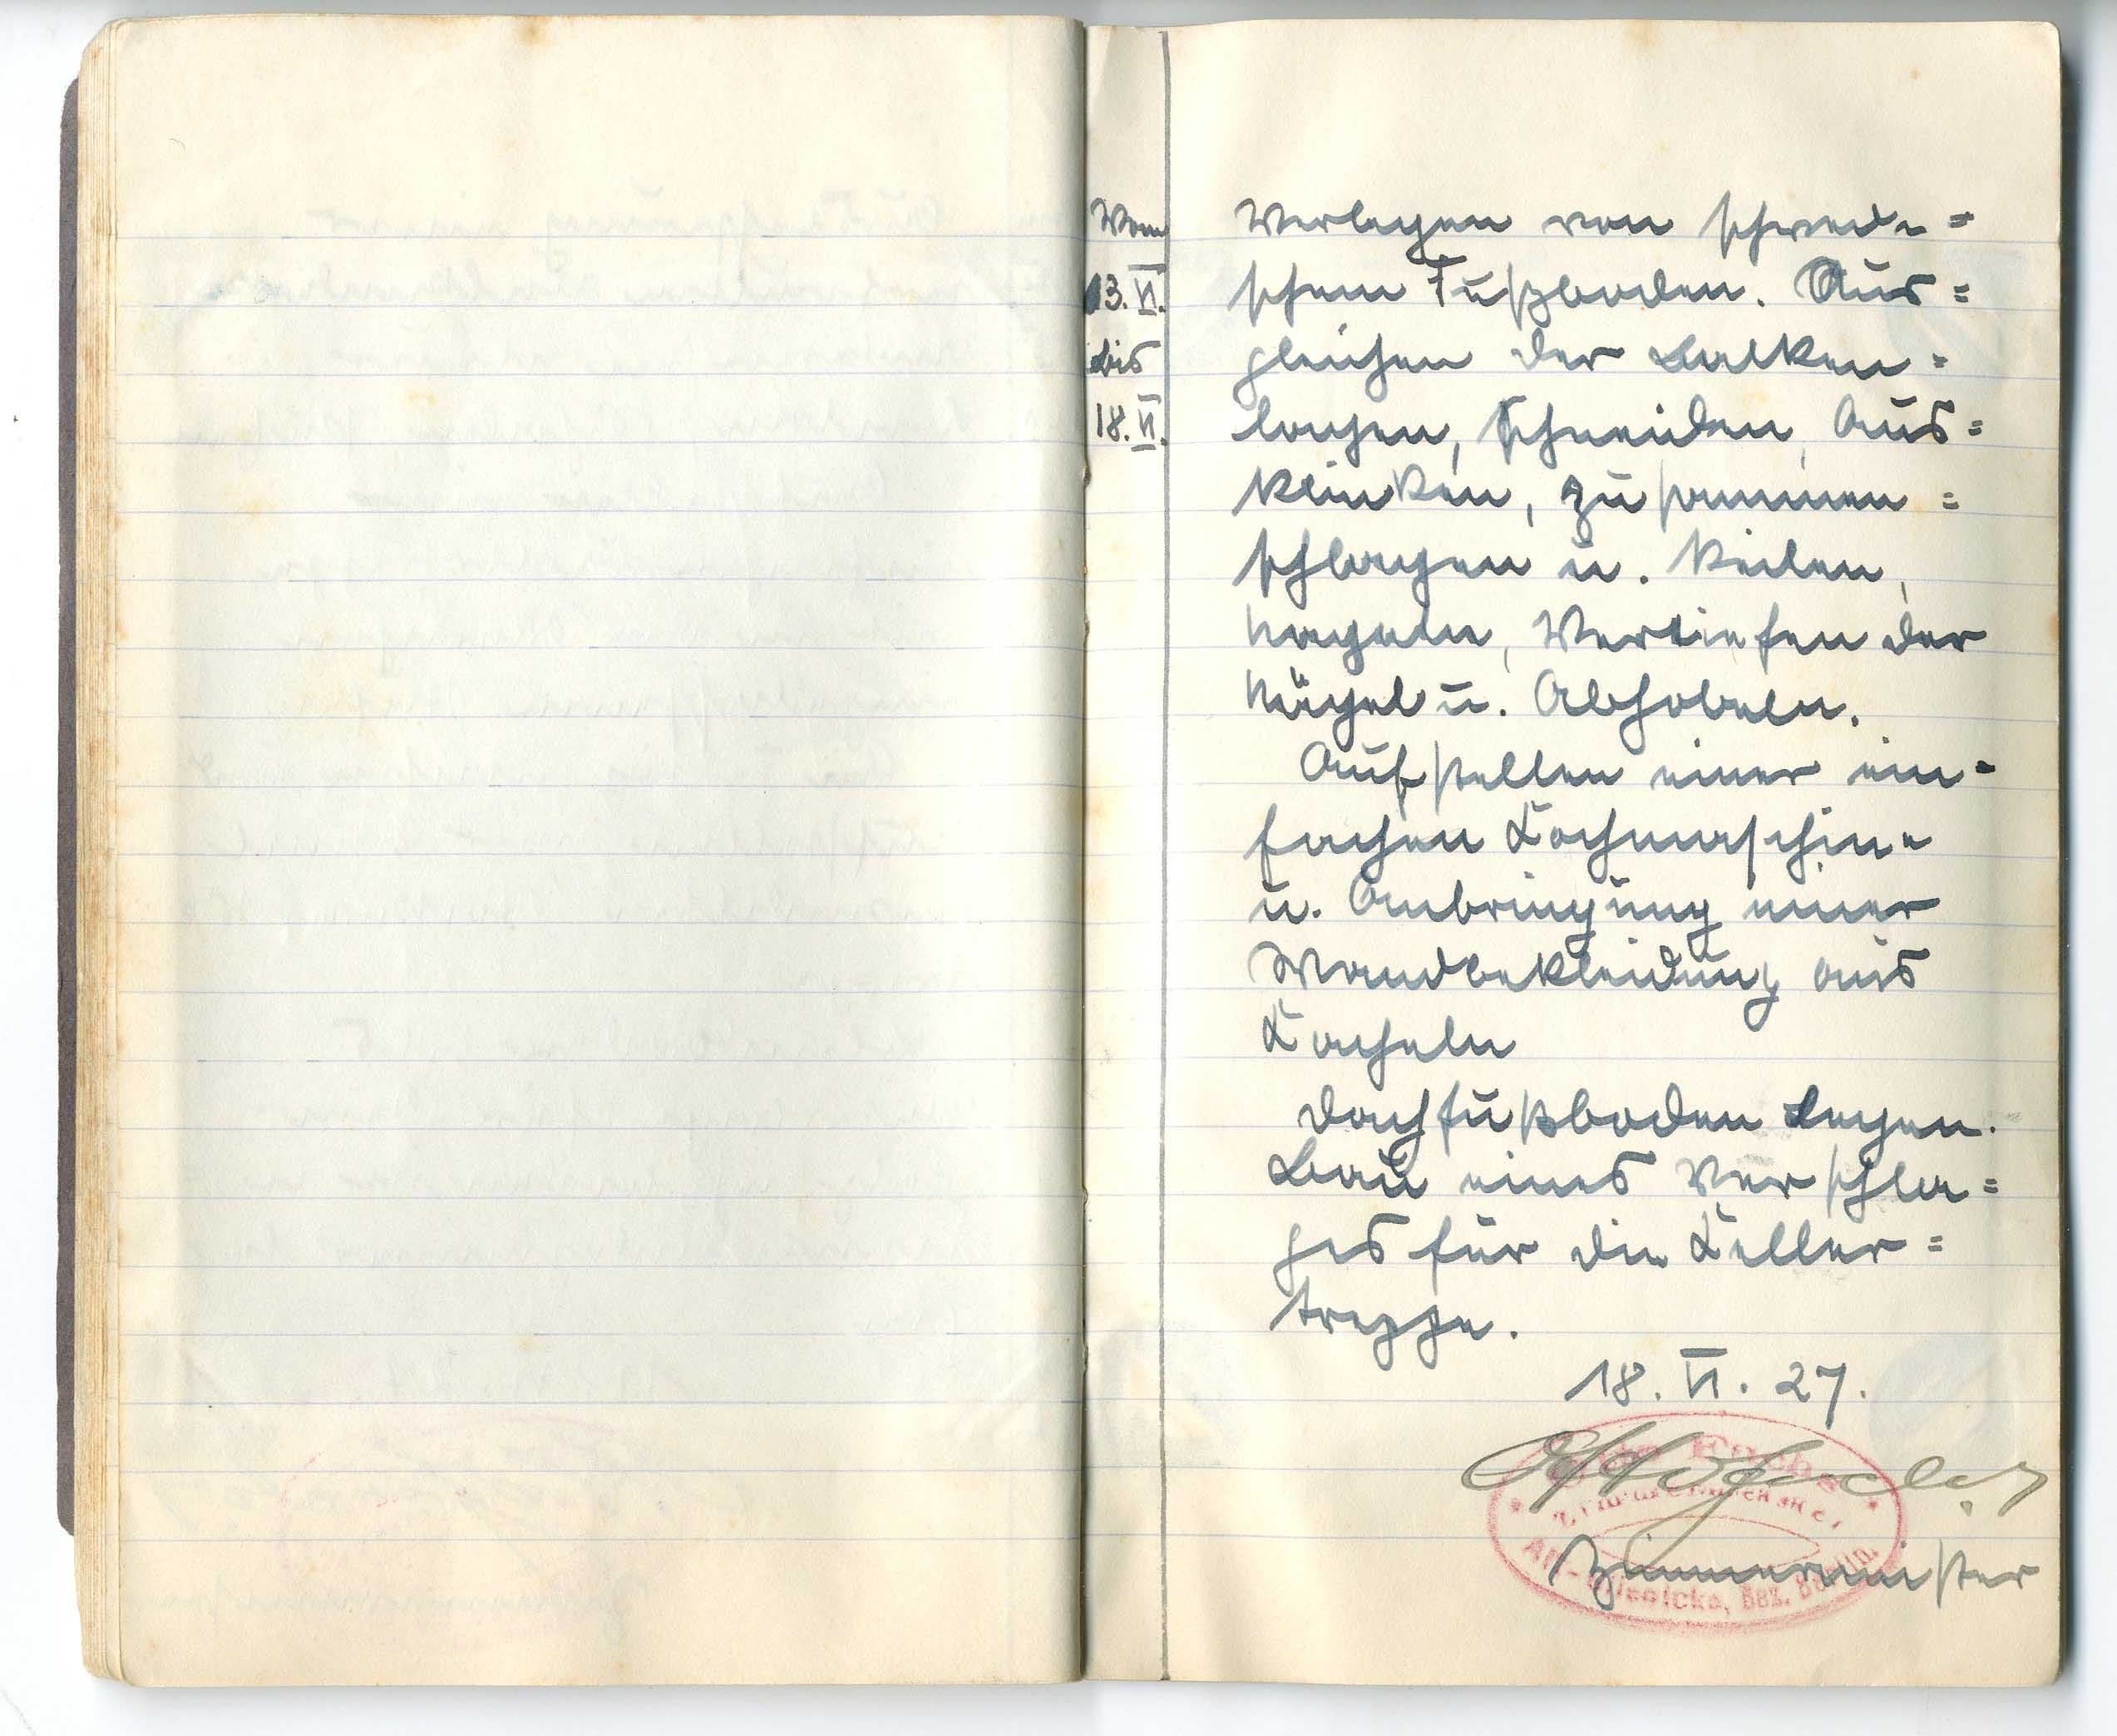 Vom
13. VI.
bis
18. VI.
Verlegen von schwedi=
schem Fußboden. Aus=
gleichen der Balken=
lagen, Schneiden, Aus=
klinken, zusammen=
schlagen u. Keilen,
Nageln, Vertiefen der
Nägel u. Abhobeln.
Aufstellen einer ein=
fachen Kochmaschine
u. Anbringung einer
Wandbekleidung aus
Kacheln
Dachfußboden Legen.
Bau eines Verschla=
ges für die Keller=
treppe.
18. VI. 27.
Zimmermeister
Bez. Berlin